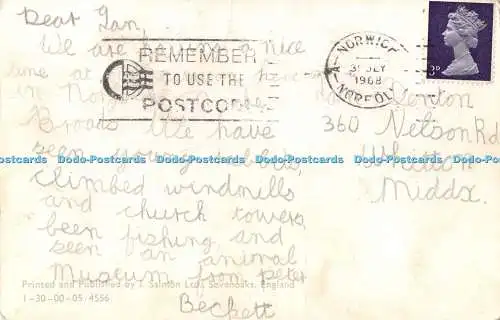 Dear Ian,
We are having a nice
time at
in Norfolk
Broads We have
seen young rabbits,
climbed windmills
and church towers,
been fishing and
seen an animal
Museum from Peter
Beckett
REMEMBER
TO USE THE
POSTCODE
NORWICH
31 JLY
1968
NORFOLK
Denton
360 Nelson Rd
Whitton
Middx.
Dodo-Postcards Dodo-Postcards Dodo-Postcards Dodo-Postcards Dodo-Postcards Dodo-Postcards
Printed and Published by J. Salmon Ltd., Sevenoaks, England
1-30-00-05/4556